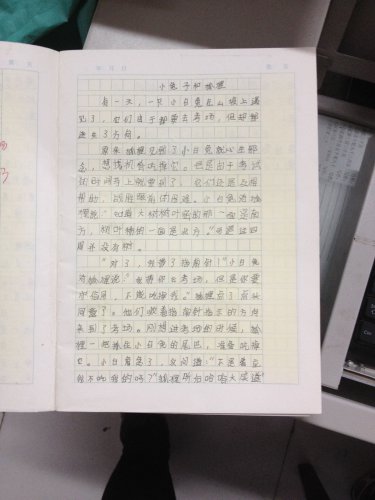 小兔子和狐狸
有一天，一只小白兔在山坡上遇
见了，它们由于都要去考场，但却都
迷失了方向。
原来狐狸见到了小白兔就心生邪
念，想找机会吃掉它。但是由于考试
的时间马上就要到了，它们还是互相
帮助，战胜眼前的困难。小白兔对狐
狸说："如果大树树叶密的那一面是南
方，树叶稀的一面是北方。"可是这四
周并没有树。
"对了，我带了指南针！"小白兔
对狐狸说："我带你去考场，但是你要
守信用，不能吃掉我。"狐狸点了点头
同意了。他们顺着指南针指示的方向
来到了考场。刚想进考场的时候，狐
狸一把抓住小白兔的尾巴，准备吃掉
它。小白兔急了，反问道："不是答应
我不吃我的吗？"狐狸听后哈哈大笑道